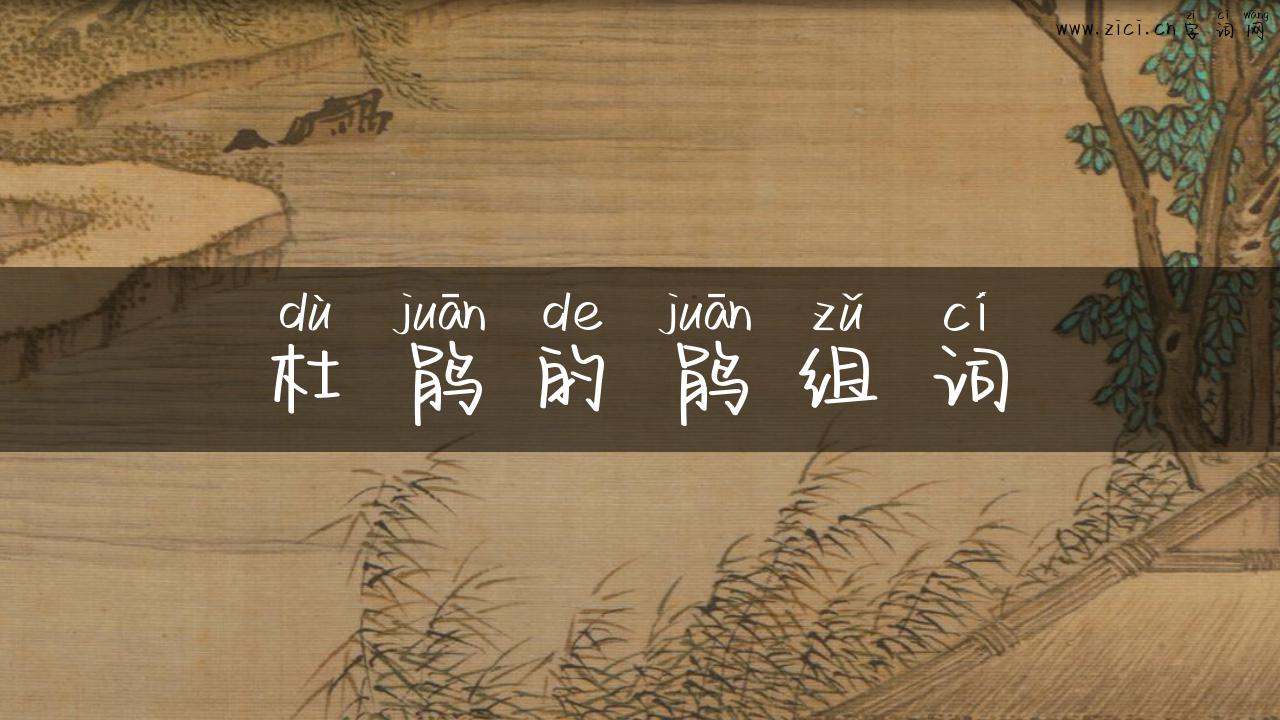 zì cí wǎng
www.zici.cn字词网
dù juān de juān zǔ cí
杜鹃的鹃组词